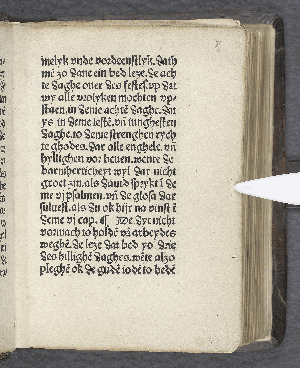 melyk vnde vordeenstlyk. dath
me zo dane ein bed leze. de ach
te daghe ouer des festes. vp dat
wy alle vrolyken mochten vp
staen. in deme achte daghe. dat
ys in deme leste. vn iunghesten
daghe. to deme strenghen rych
te ghodes. dar alle enghele. vn
hyllighen vor beuen. wente de
barmherticheyt wyl dar nicht
groet zin. als dauid sprykt i de
me vi psalmen. vn de glosa dar
sulues. als du ok hijr na vinst i
deme vi cap. ¶ We dyt nicht
vormach to holde vn arbeydes
weghe. de leze dat bed yo drie
des hillighe daghes. wete alzo
pleghe ok de gude iode to bede